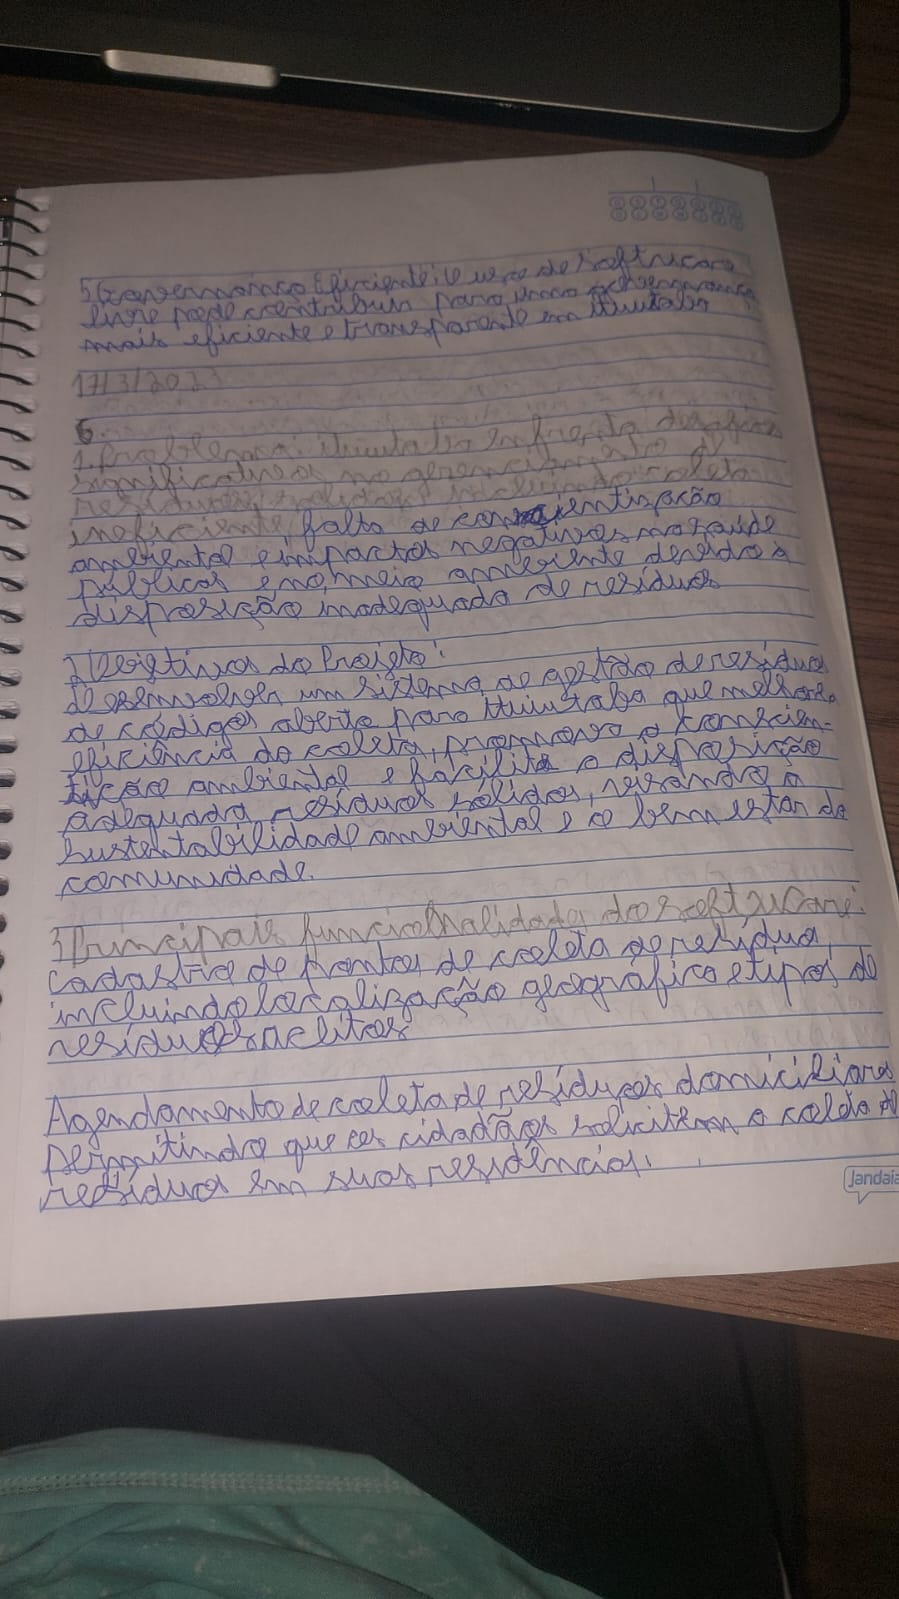 5 Governança Eficiente: O uso de software
livre pode contribuir para uma governança
mais eficiente e transparente em Ituiutaba
17/3/202
6.
1. Problema: Ituiutaba enfrenta desafios
significativos no gerenciamento de
resíduos sólidos incluindo coleta
ineficiente, falta de conscientização
ambiental e impactos negativos na saúde
públicas e no meio ambiente devido à
disposição inadequada de resíduos
2 Objetivos do Projeto:
desenvolver um sistema de gestão de resíduos
de códigos aberto para Ituiutaba que melhore a
eficiência da coleta, promova a conscien-
tização ambiental e facilita a disposição
adequada resíduos sólidos, visando a
sustentabilidade ambiental e o bem estar da
comunidade.
3 Principais funcionalidada do software:
Cadastro de pontos de coleta de resídua,
incluindo localização geográfica e tipos de
resíduos aceitos
Agendamento de coleta de resíduos domiciliares
permitindo que os cidadãos solicitem a coleta de
resíduos em suas residências.
Jandaia